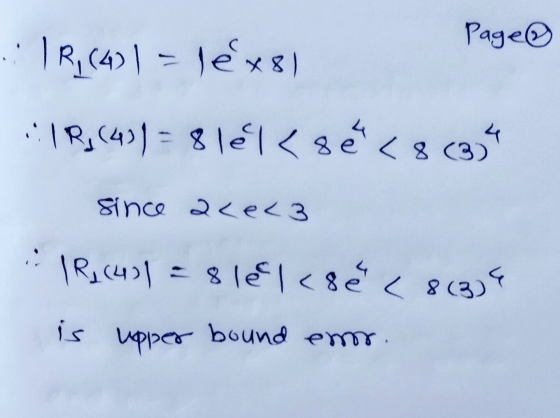 Page ②
∴ |R₁(4)| = |eᶜ × 8|
∴ |R₁(4)| = 8 |eᶜ| < 8e⁴ < 8 (3)⁴
since 2 < e < 3
∴ |R₁(4)| = 8 |eᶜ| < 8e⁴ < 8(3)⁴
is upper bound error.